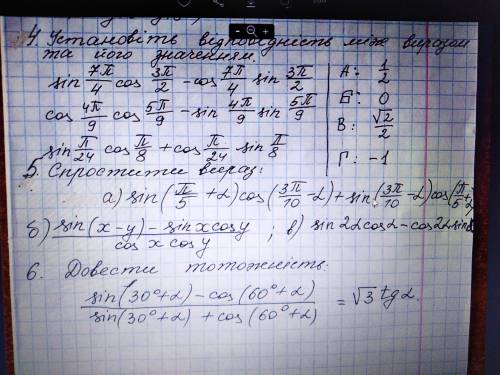 4. Установіть відповідність між виразом
та його значенням.
sin 7π/4 cos 3π/2 - cos 7π/4 sin 3π/2
А: 1/2
cos 4π/9 cos 5π/9 - sin 4π/9 sin 5π/9
Б: 0
В: √2/2
sin π/24 cos π/8 + cos π/24 sin π/8
Г: -1
5. Спростити вираз:
а) sin(π/5 + α) cos(3π/10 - α) + sin(3π/10 - α) cos(π/5 + α)
б) (sin(x-y) - sin x cos y)/(cos x cos y) ; в) sin 2α cos α - cos 2α sin α
6. Довести тотожність:
(sin(30° + α) - cos(60° + α))/(sin(30° + α) + cos(60° + α)) = √3 tg α.